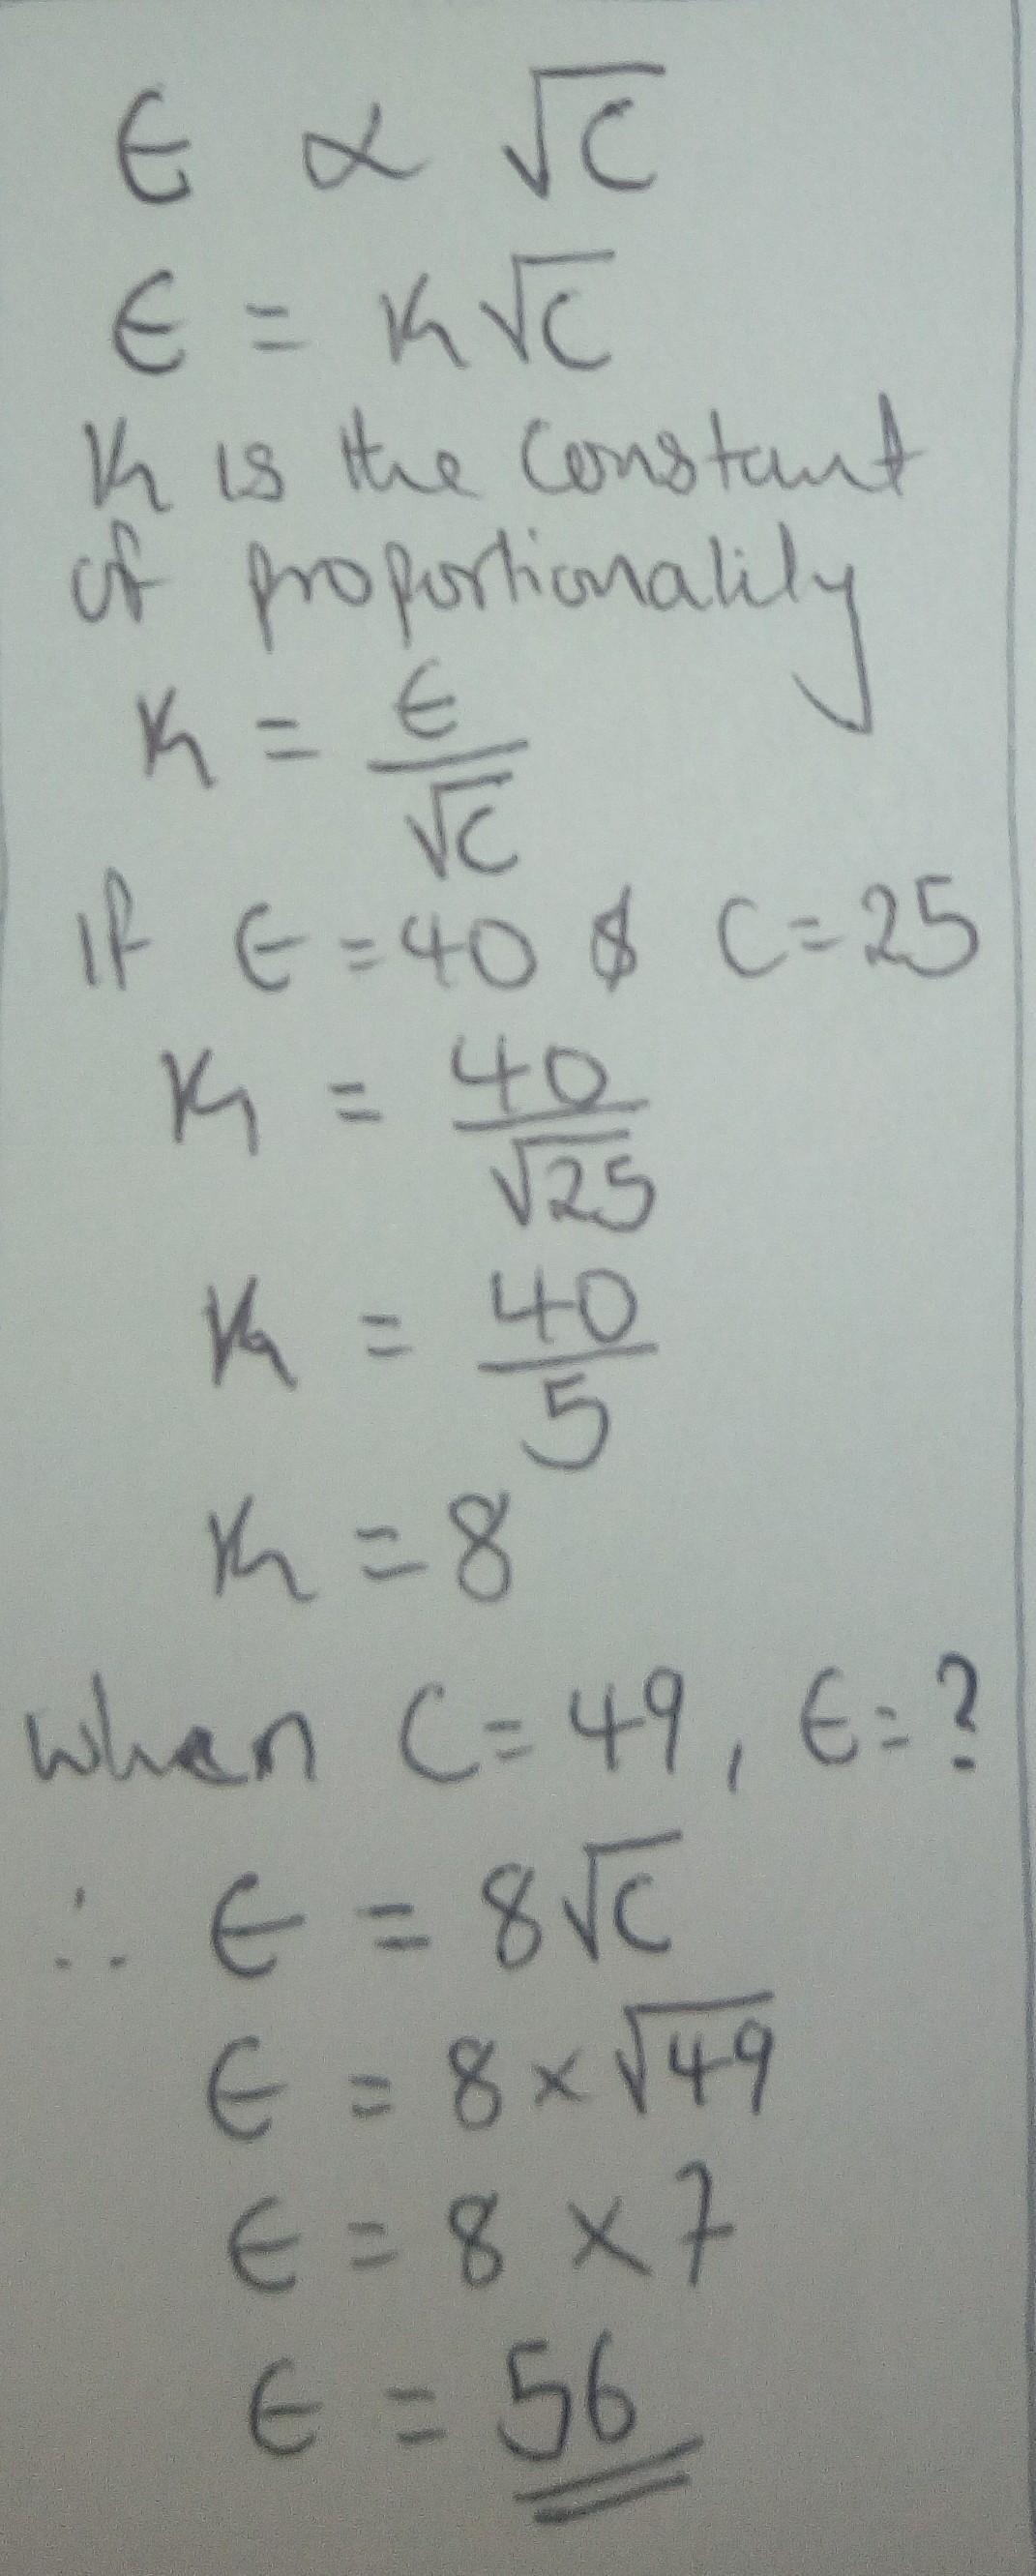 E ∝ √C
E = K√C
K is the constant
of proportionality
K = E/√C
If E = 40 & C = 25
K = 40/√25
K = 40/5
K = 8
When C = 49, E = ?
∴ E = 8√C
E = 8 × √49
E = 8 × 7
E = 56